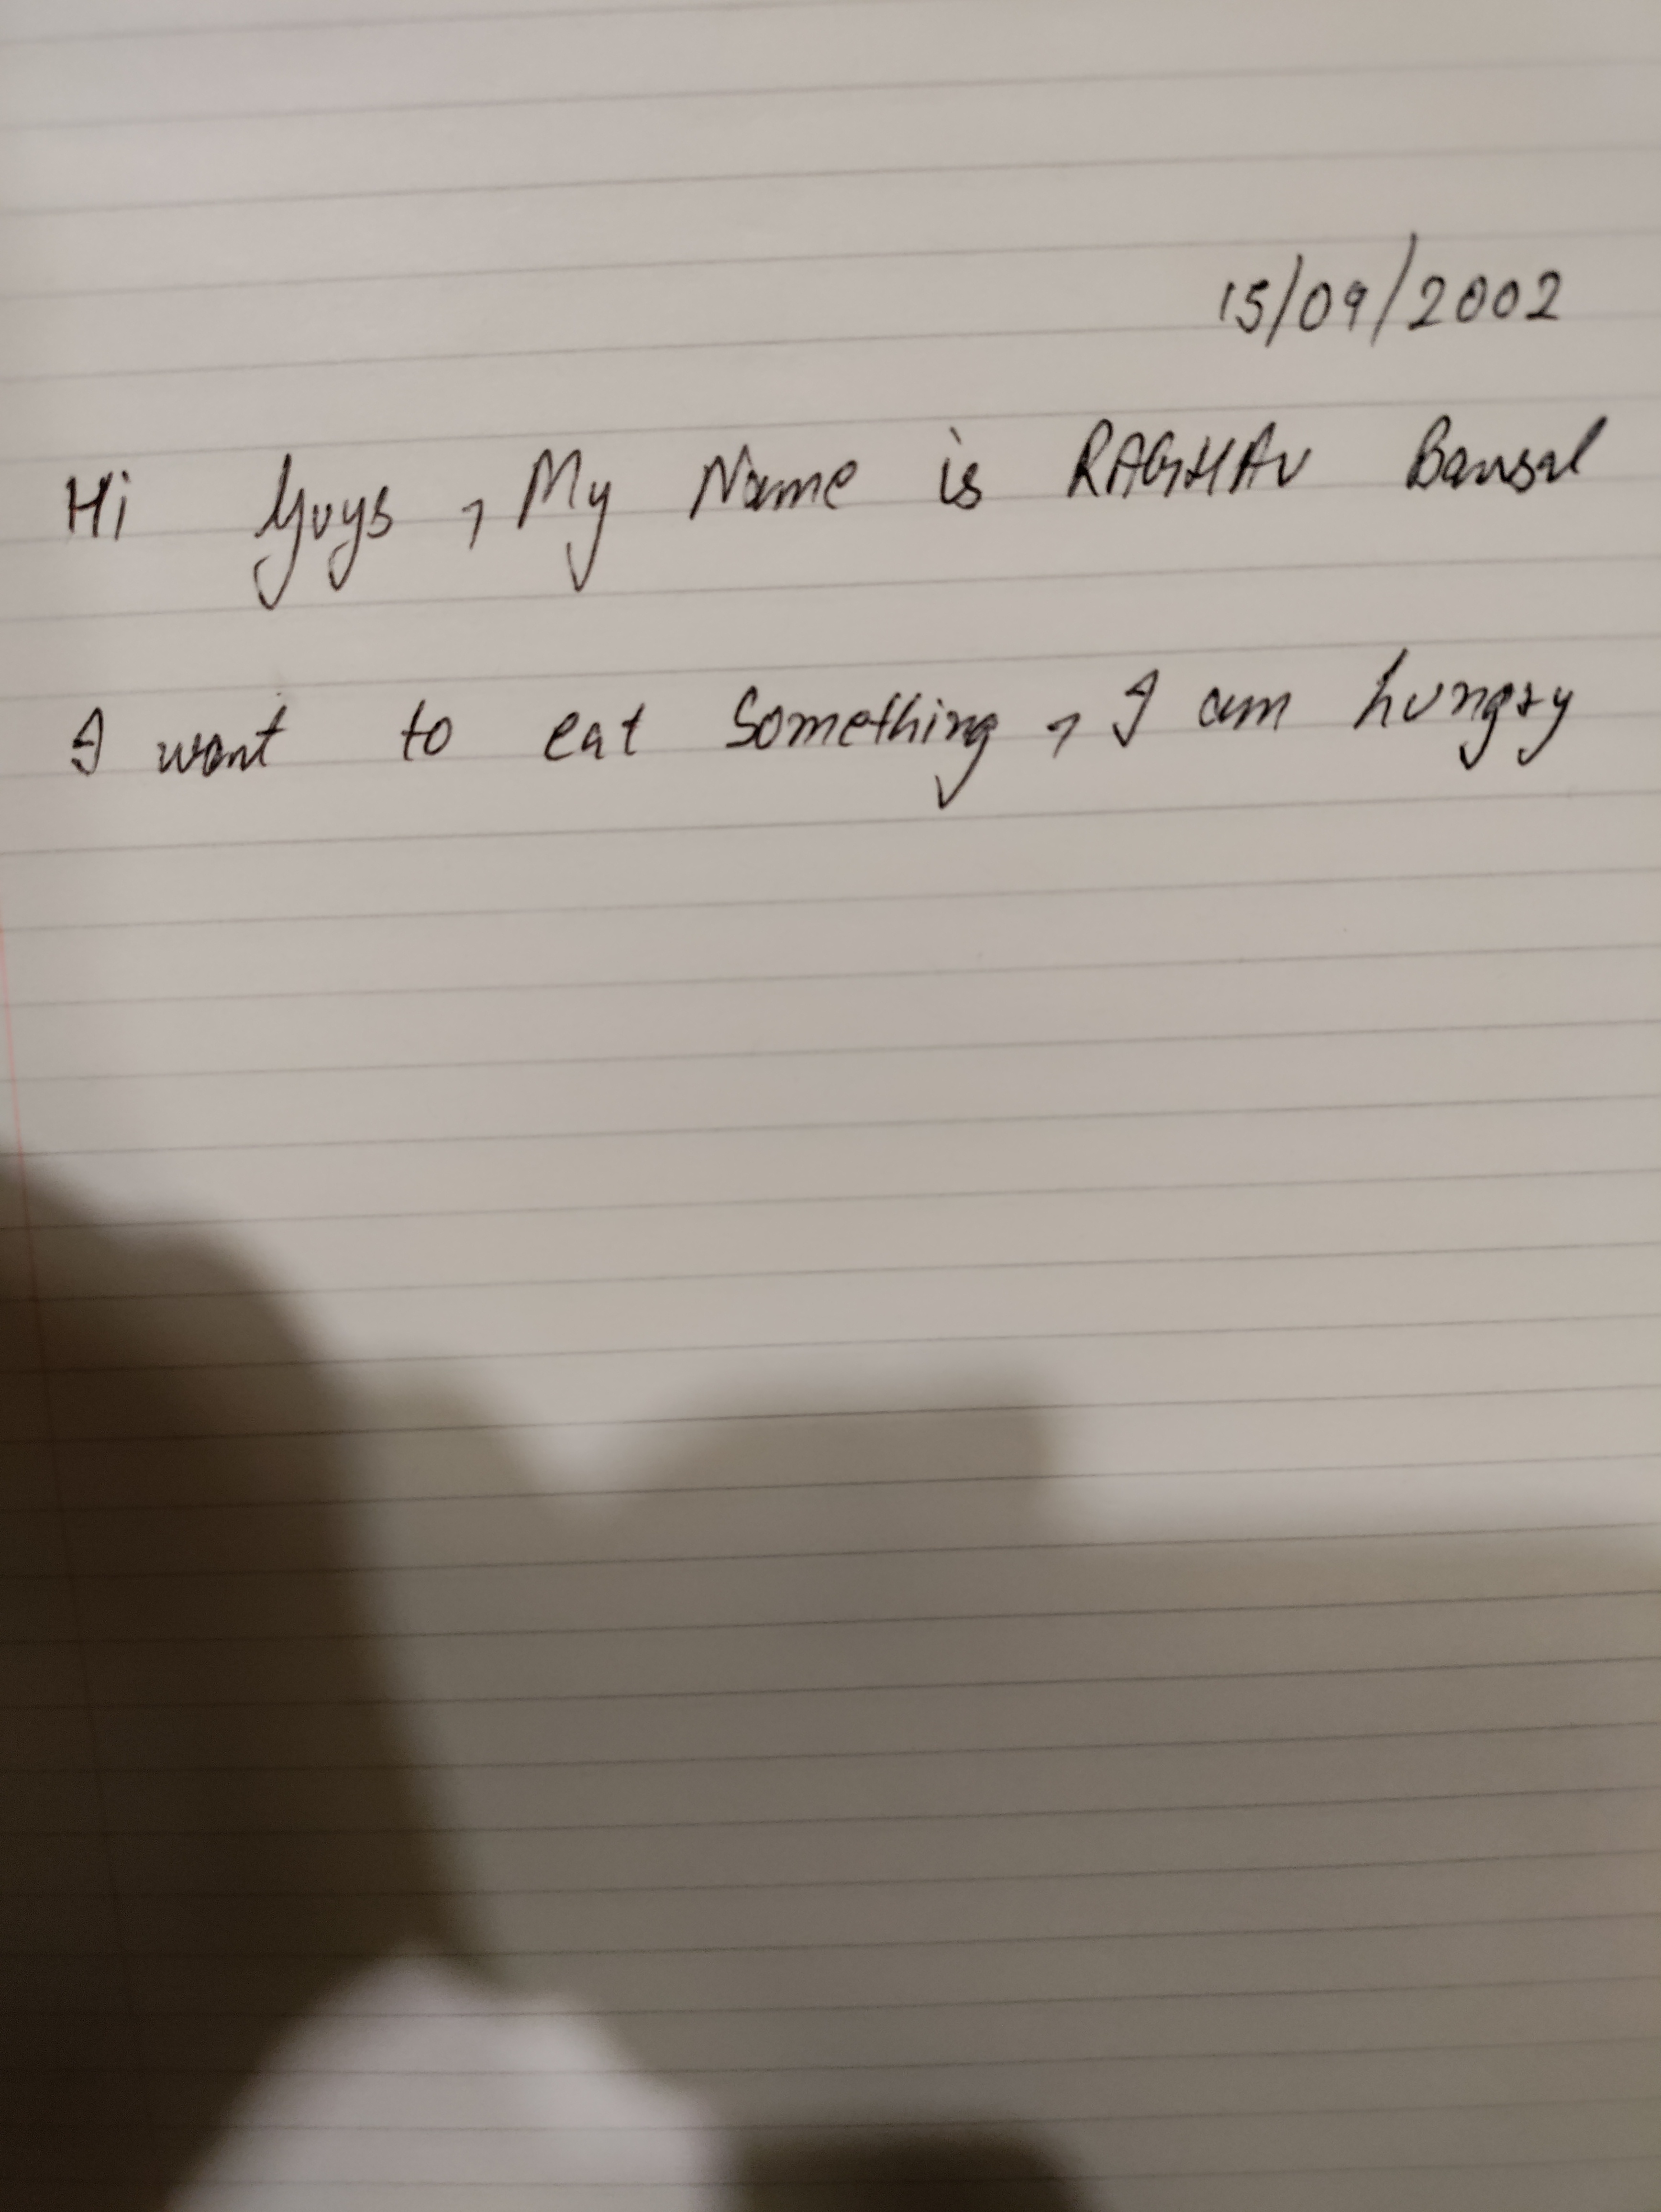 15/09/2002
Hi Guys, My Name is RAGHAV Bansal
I want to eat Something, I am hungry